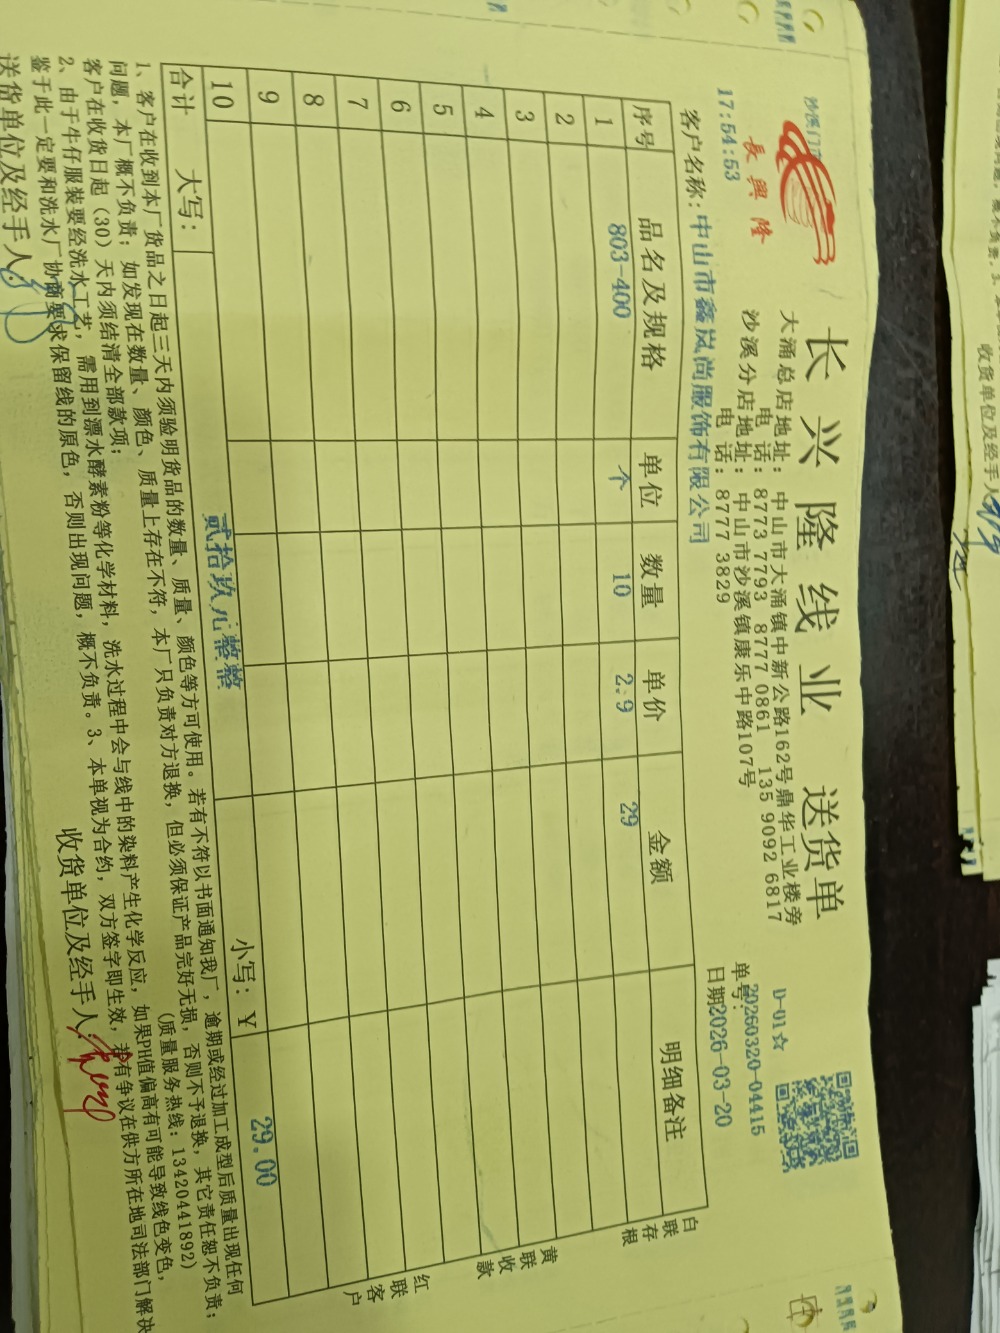 沙溪门市
長興隆
17:54:53
长兴隆线业 送货单
大涌总店地址: 中山市大涌镇中新公路162号鼎华工业楼旁
电 话: 8773 7793 8777 0861 135 9092 6817
沙溪分店地址: 中山市沙溪镇康乐中路107号
电 话: 8777 3829
D-01☆
单号: 20260320-04415
日期2026-03-20
客户名称: 中山市鑫岚尚服饰有限公司
序号 品名及规格 单位 数量 单价 金额 明细备注
1 803-400 个 10 2.9 29
2
3
4
5
6
7
8
9
10
合计 大写: 贰拾玖元整整 小写: ¥ 29.00
白联存根
黄联收款
红联客户
1、客户在收到本厂货品之日起三天内须验明货品的数量、质量、颜色等方可使用。若有不符以书面通知我厂，逾期或经过加工成型后质量出现任何
问题，本厂概不负责；如发现在数量、颜色、质量上存在不符，本厂只负责对方退换，但必须保证产品完好无损，否则不予退换，其它责任恕不负责；
客户在收货日起（30）天内须结清全部款项； (质量服务热线: 13420441892)
2、由于牛仔服装要经洗水工艺，需用到漂水酵素粉等化学材料，洗水过程中会与线中的染料产生化学反应，如果PH值偏高有可能导致线色变色，
鉴于此一定要和洗水厂协商要求保留线的原色，否则出现问题，概不负责。3、本单视为合约，双方签字即生效，若有争议在供方所在地司法部门解决
送货单位及经手人:
收货单位及经手人:
收货单位及经手人